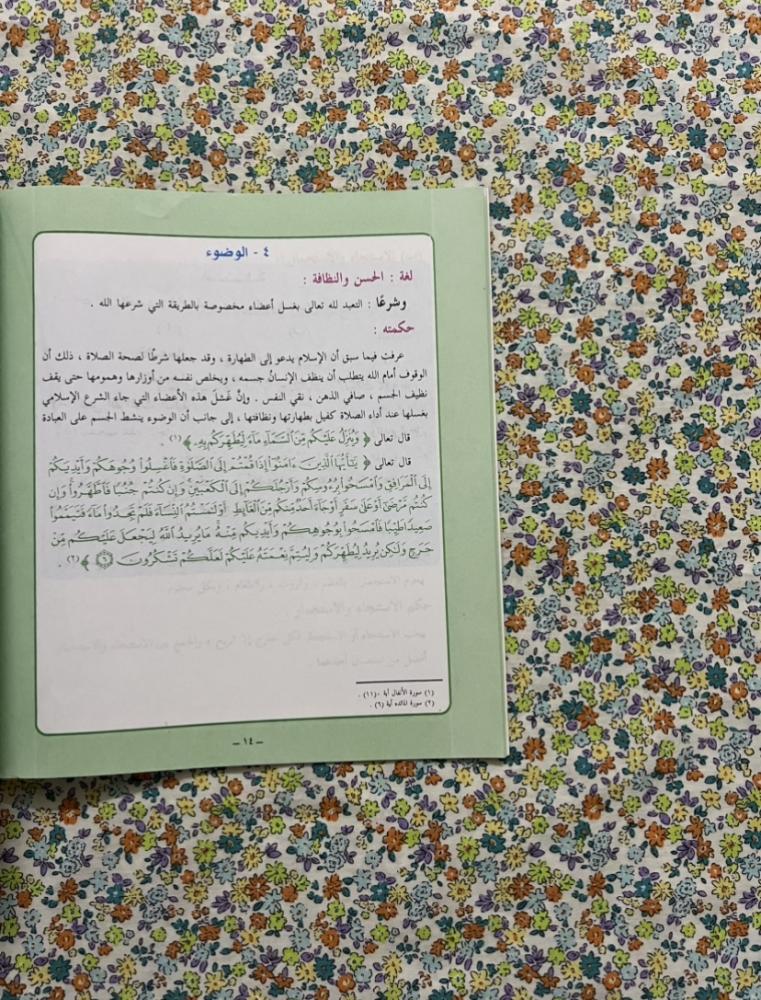 ٤ - الوضوء
لغة : الحسن والنظافة :
وشرعًا : التعبد لله تعالى بغسل أعضاء مخصوصة بالطريقة التي شرعها الله .
حكمته :
عرفت فيما سبق أن الإسلام يدعو إلى الطهارة ، وقد جعلها شرطًا لصحة الصلاة ، ذلك أن
الوقوف أمام الله يتطلب أن ينظف الإنسانُ جسمه ، ويخلص نفسه من أوزارها وهمومها حتى يقف
نظيف الجسم ، صافي الذهن ، نقي النفس . وإنَّ غسْلَ هذه الأعضاء التي جاء الشرع الإسلامي
بغسلها عند أداء الصلاة كفيل بطهارتها ونظافتها ، إلى جانب أن الوضوء ينشط الجسم على العبادة
قال تعالى ﴿ وَيُنَزِّلُ عَلَيْكُم مِّنَ ٱلسَّمَآءِ مَآءً لِّيُطَهِّرَكُم بِهِۦ ﴾ (١) .
قال تعالى ﴿ يَٰٓأَيُّهَا ٱلَّذِينَ ءَامَنُوٓا۟ إِذَا قُمْتُمْ إِلَى ٱلصَّلَوٰةِ فَٱغْسِلُوا۟ وُجُوهَكُمْ وَأَيْدِيَكُمْ
إِلَى ٱلْمَرَافِقِ وَٱمْسَحُوا۟ بِرُءُوسِكُمْ وَأَرْجُلَكُمْ إِلَى ٱلْكَعْبَيْنِ وَإِن كُنتُمْ جُنُبًا فَٱطَّهَّرُوا۟ وَإِن
كُنتُم مَّرْضَىٰٓ أَوْ عَلَىٰ سَفَرٍ أَوْ جَآءَ أَحَدٌ مِّنكُم مِّنَ ٱلْغَآئِطِ أَوْ لَٰمَسْتُمُ ٱلنِّسَآءَ فَلَمْ تَجِدُوا۟ مَآءً فَتَيَمَّمُوا۟
صَعِيدًا طَيِّبًا فَٱمْسَحُوا۟ بِوُجُوهِكُمْ وَأَيْدِيكُم مِّنْهُ مَا يُرِيدُ ٱللَّهُ لِيَجْعَلَ عَلَيْكُم مِّنْ
حَرَجٍ وَلَٰكِن يُرِيدُ لِيُطَهِّرَكُمْ وَلِيُتِمَّ نِعْمَتَهُۥ عَلَيْكُمْ لَعَلَّكُمْ تَشْكُرُونَ ٦ ﴾ (٢) .
(١) سورة الأنفال آية (١١) .
(٢) سورة المائدة آية (٦) .
– ١٤ –